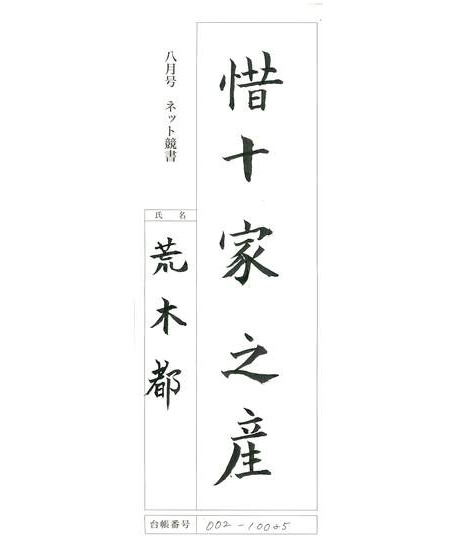 惜十家之産
八月号 ネット競書
氏名
荒木都
台帳番号 002-10005